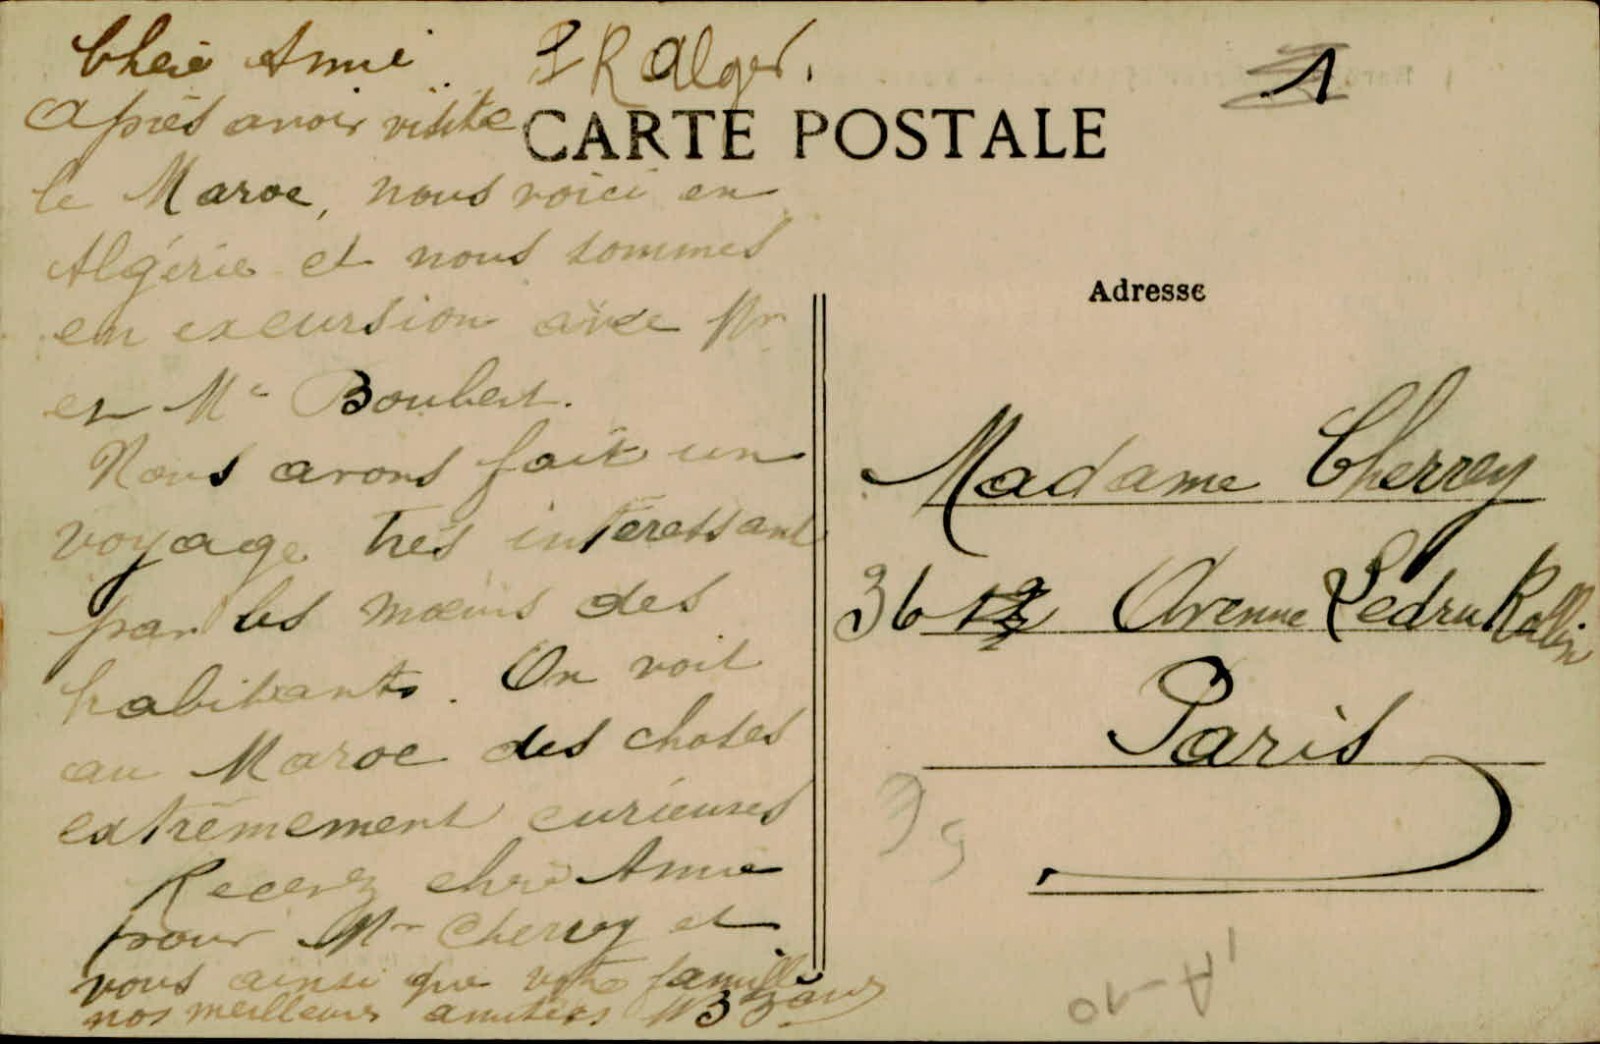 Chère Amie
PR Alger.
1
Après avoir visité
CARTE POSTALE
le Maroc, nous voici en
Algérie et nous sommes
en excursion avec Mr
et Me Boubert.
Nous avons fait un
voyage très intéressant
par les mœurs des
habitants. On voit
au Maroc des choses
extrêmement curieuses
Recevez chère Amie
pour Mr Cherrey et
vous ainsi que votre famille
nos meilleurs amitiés
Adresse
Madame Cherrey
36 Avenue Ledru Rollin
Paris
A-10